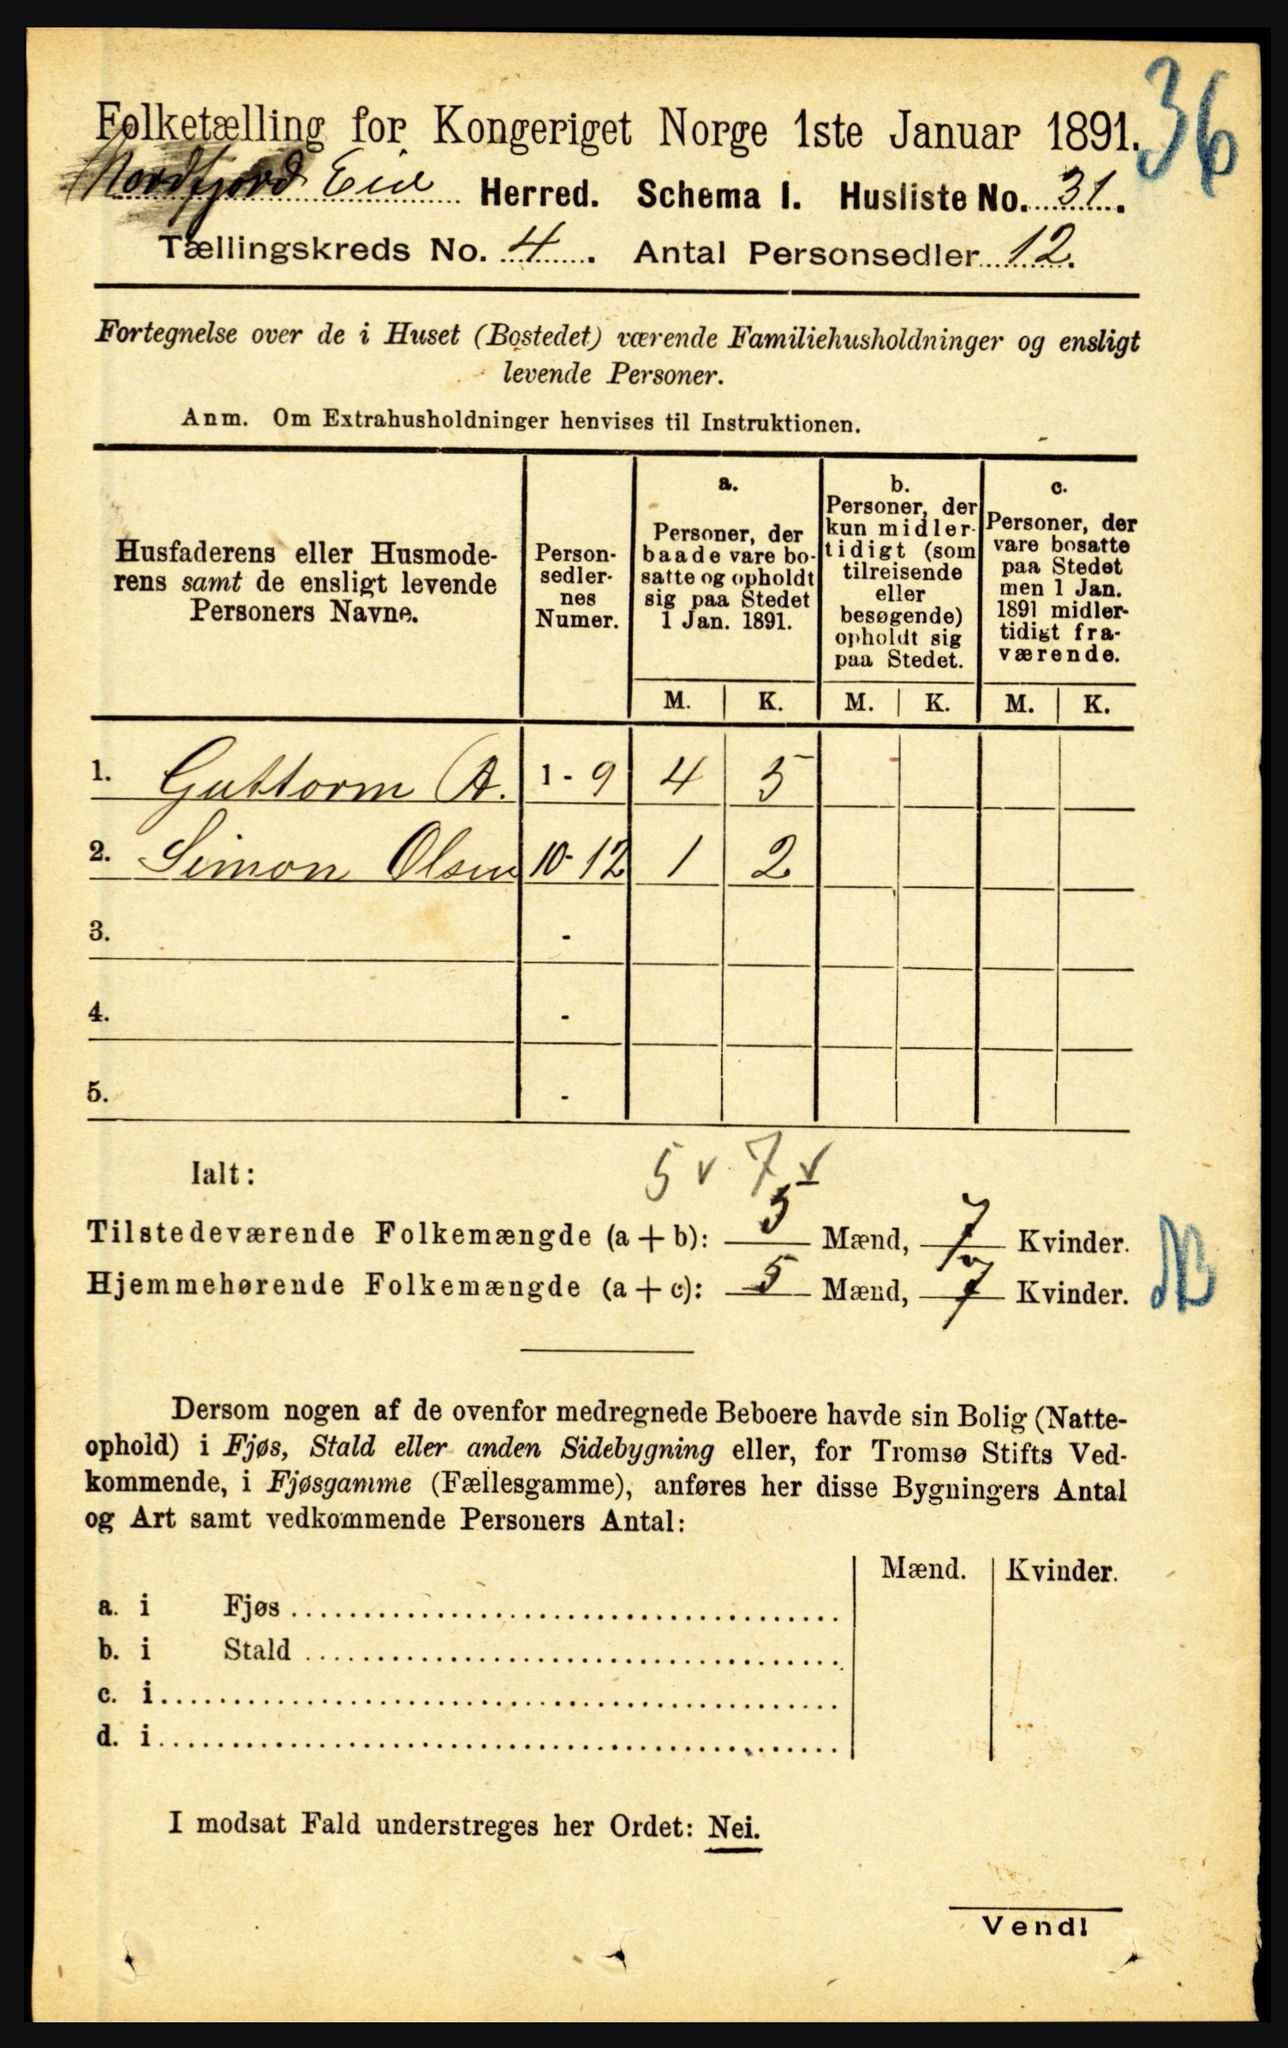 36
Folketælling for Kongeriget Norge 1ste Januar 1891.
Nordfjord Eid Herred. Schema I. Husliste No. 31.
Tællingskreds No. 4. Antal Personsedler 12.
Fortegnelse over de i Huset (Bostedet) værende Familiehusholdninger og ensligt
levende Personer.
Anm. Om Extrahusholdninger henvises til Instruktionen.
Husfaderens eller Husmode-
rens samt de ensligt levende
Personers Navne.
Person-
sedler-
nes
Numer.
a.
Personer, der
baade vare bo-
satte og opholdt
sig paa Stedet
1 Jan. 1891.
b.
Personer, der
kun midler-
tidigt (som
tilreisende
eller
besøgende)
opholdt sig
paa Stedet.
c.
Personer, der
vare bosatte
paa Stedet
men 1 Jan.
1891 midler-
tidigt fra-
værende.
M. K. M. K. M. K.
1. Guttorm A. 1 - 9 4 5
2. Simon Olsen 10 - 12 1 2
3. -
4. -
5. -
5 v 7 v
Ialt:
Tilstedeværende Folkemængde (a + b): 5 Mænd, 7 Kvinder.
Hjemmehørende Folkemængde (a + c): 5 Mænd, 7 Kvinder.
Dersom nogen af de ovenfor medregnede Beboere havde sin Bolig (Natte-
ophold) i Fjøs, Stald eller anden Sidebygning eller, for Tromsø Stifts Ved-
kommende, i Fjøsgamme (Fællesgamme), anføres her disse Bygningers Antal
og Art samt vedkommende Personers Antal:
Mænd. Kvinder.
a. i Fjøs
b. i Stald
c. i
d. i
I modsat Fald understreges her Ordet: Nei.
Vend!